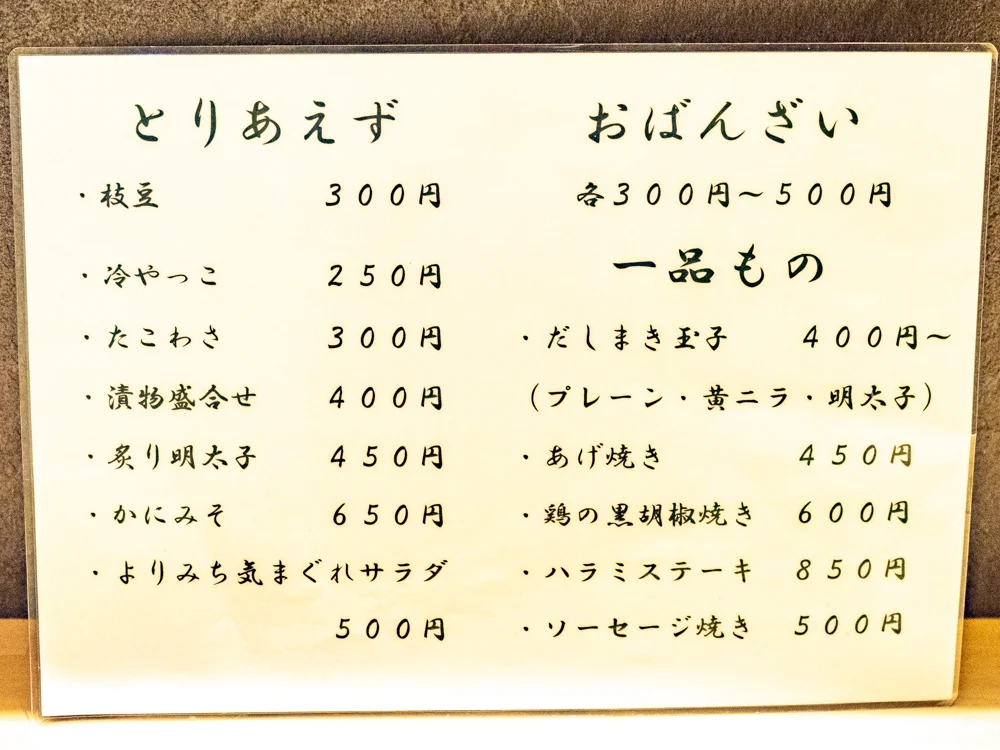 とりあえず
・枝豆 300円
・冷やっこ 250円
・たこわさ 300円
・漬物盛合せ 400円
・炙り明太子 450円
・かにみそ 650円
・よりみち気まぐれサラダ
500円
おばんざい
各300円～500円
一品もの
・だしまき玉子 400円～
（プレーン・黄ニラ・明太子）
・あげ焼き 450円
・鶏の黒胡椒焼き 600円
・ハラミステーキ 850円
・ソーセージ焼き 500円